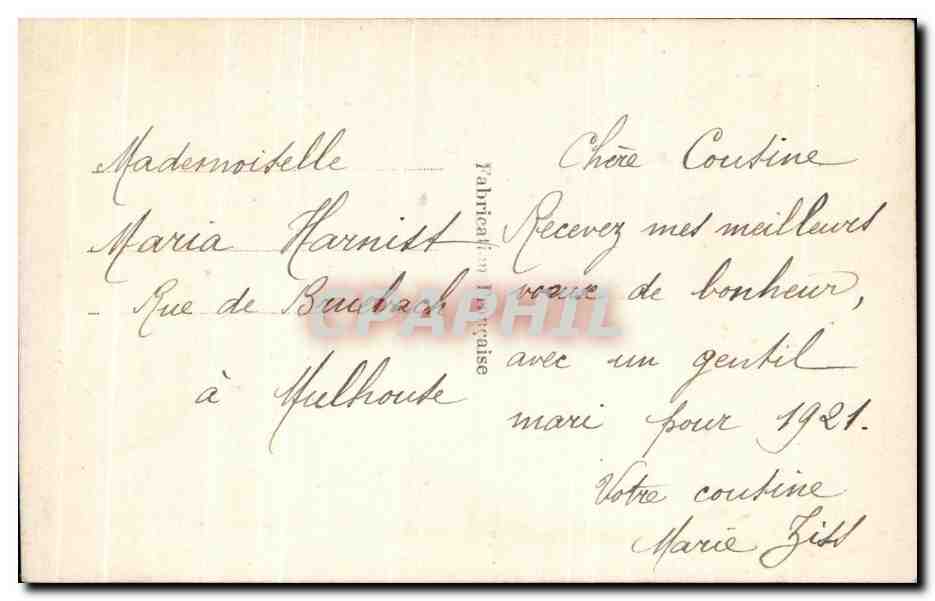 Mademoiselle
Maria Harnist
- Rue de Bruebach
à Mulhouse
Fabrication Française
Chère Cousine
Recevez mes meilleurs
voeux de bonheur,
avec un gentil
mari pour 1921.
Votre cousine
Marie Ziss
CPAPHIL